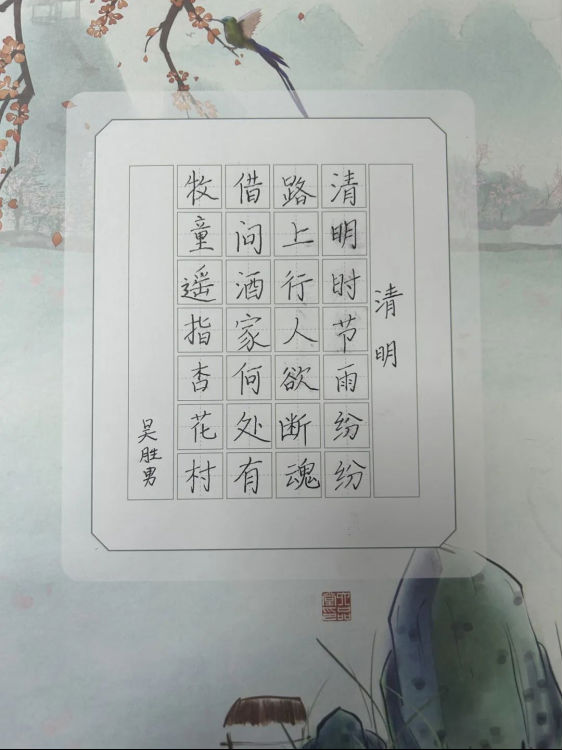 清明
清明时节雨纷纷
路上行人欲断魂
借问酒家何处有
牧童遥指杏花村
吴胜男